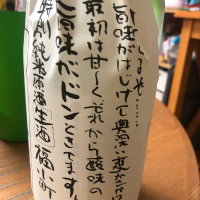 しゅわ……
旨味がはじけて奥深い変化が
最初は甘〜くそれから酸味の
旨味がドンときてます
特別純米原酒[生酒]福小町